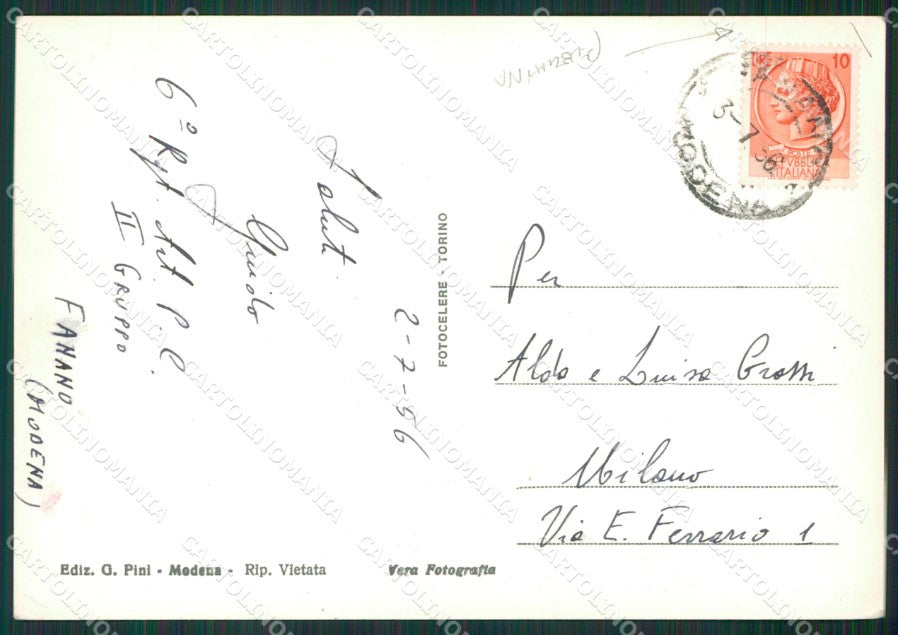 2-7-56
Saluti
Guido
6º Rgt. Art. P. C.
II GRUPPO
FANANO
(MODENA)
FOTOCELERE - TORINO
10
POSTE
REPUBBLICA
ITALIANA
3-7 56
MODENA
Per
Aldo e Luisa Grossi
Milano
Via E. Ferrario 1
Ediz. G. Pini - Modena - Rip. Vietata
Vera Fotografia
CARTOLINOMANIA